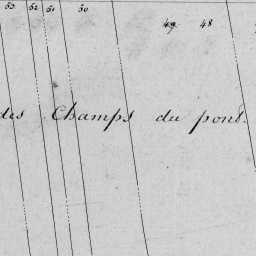 53 52 51 50 49 48
des Champs du pont.